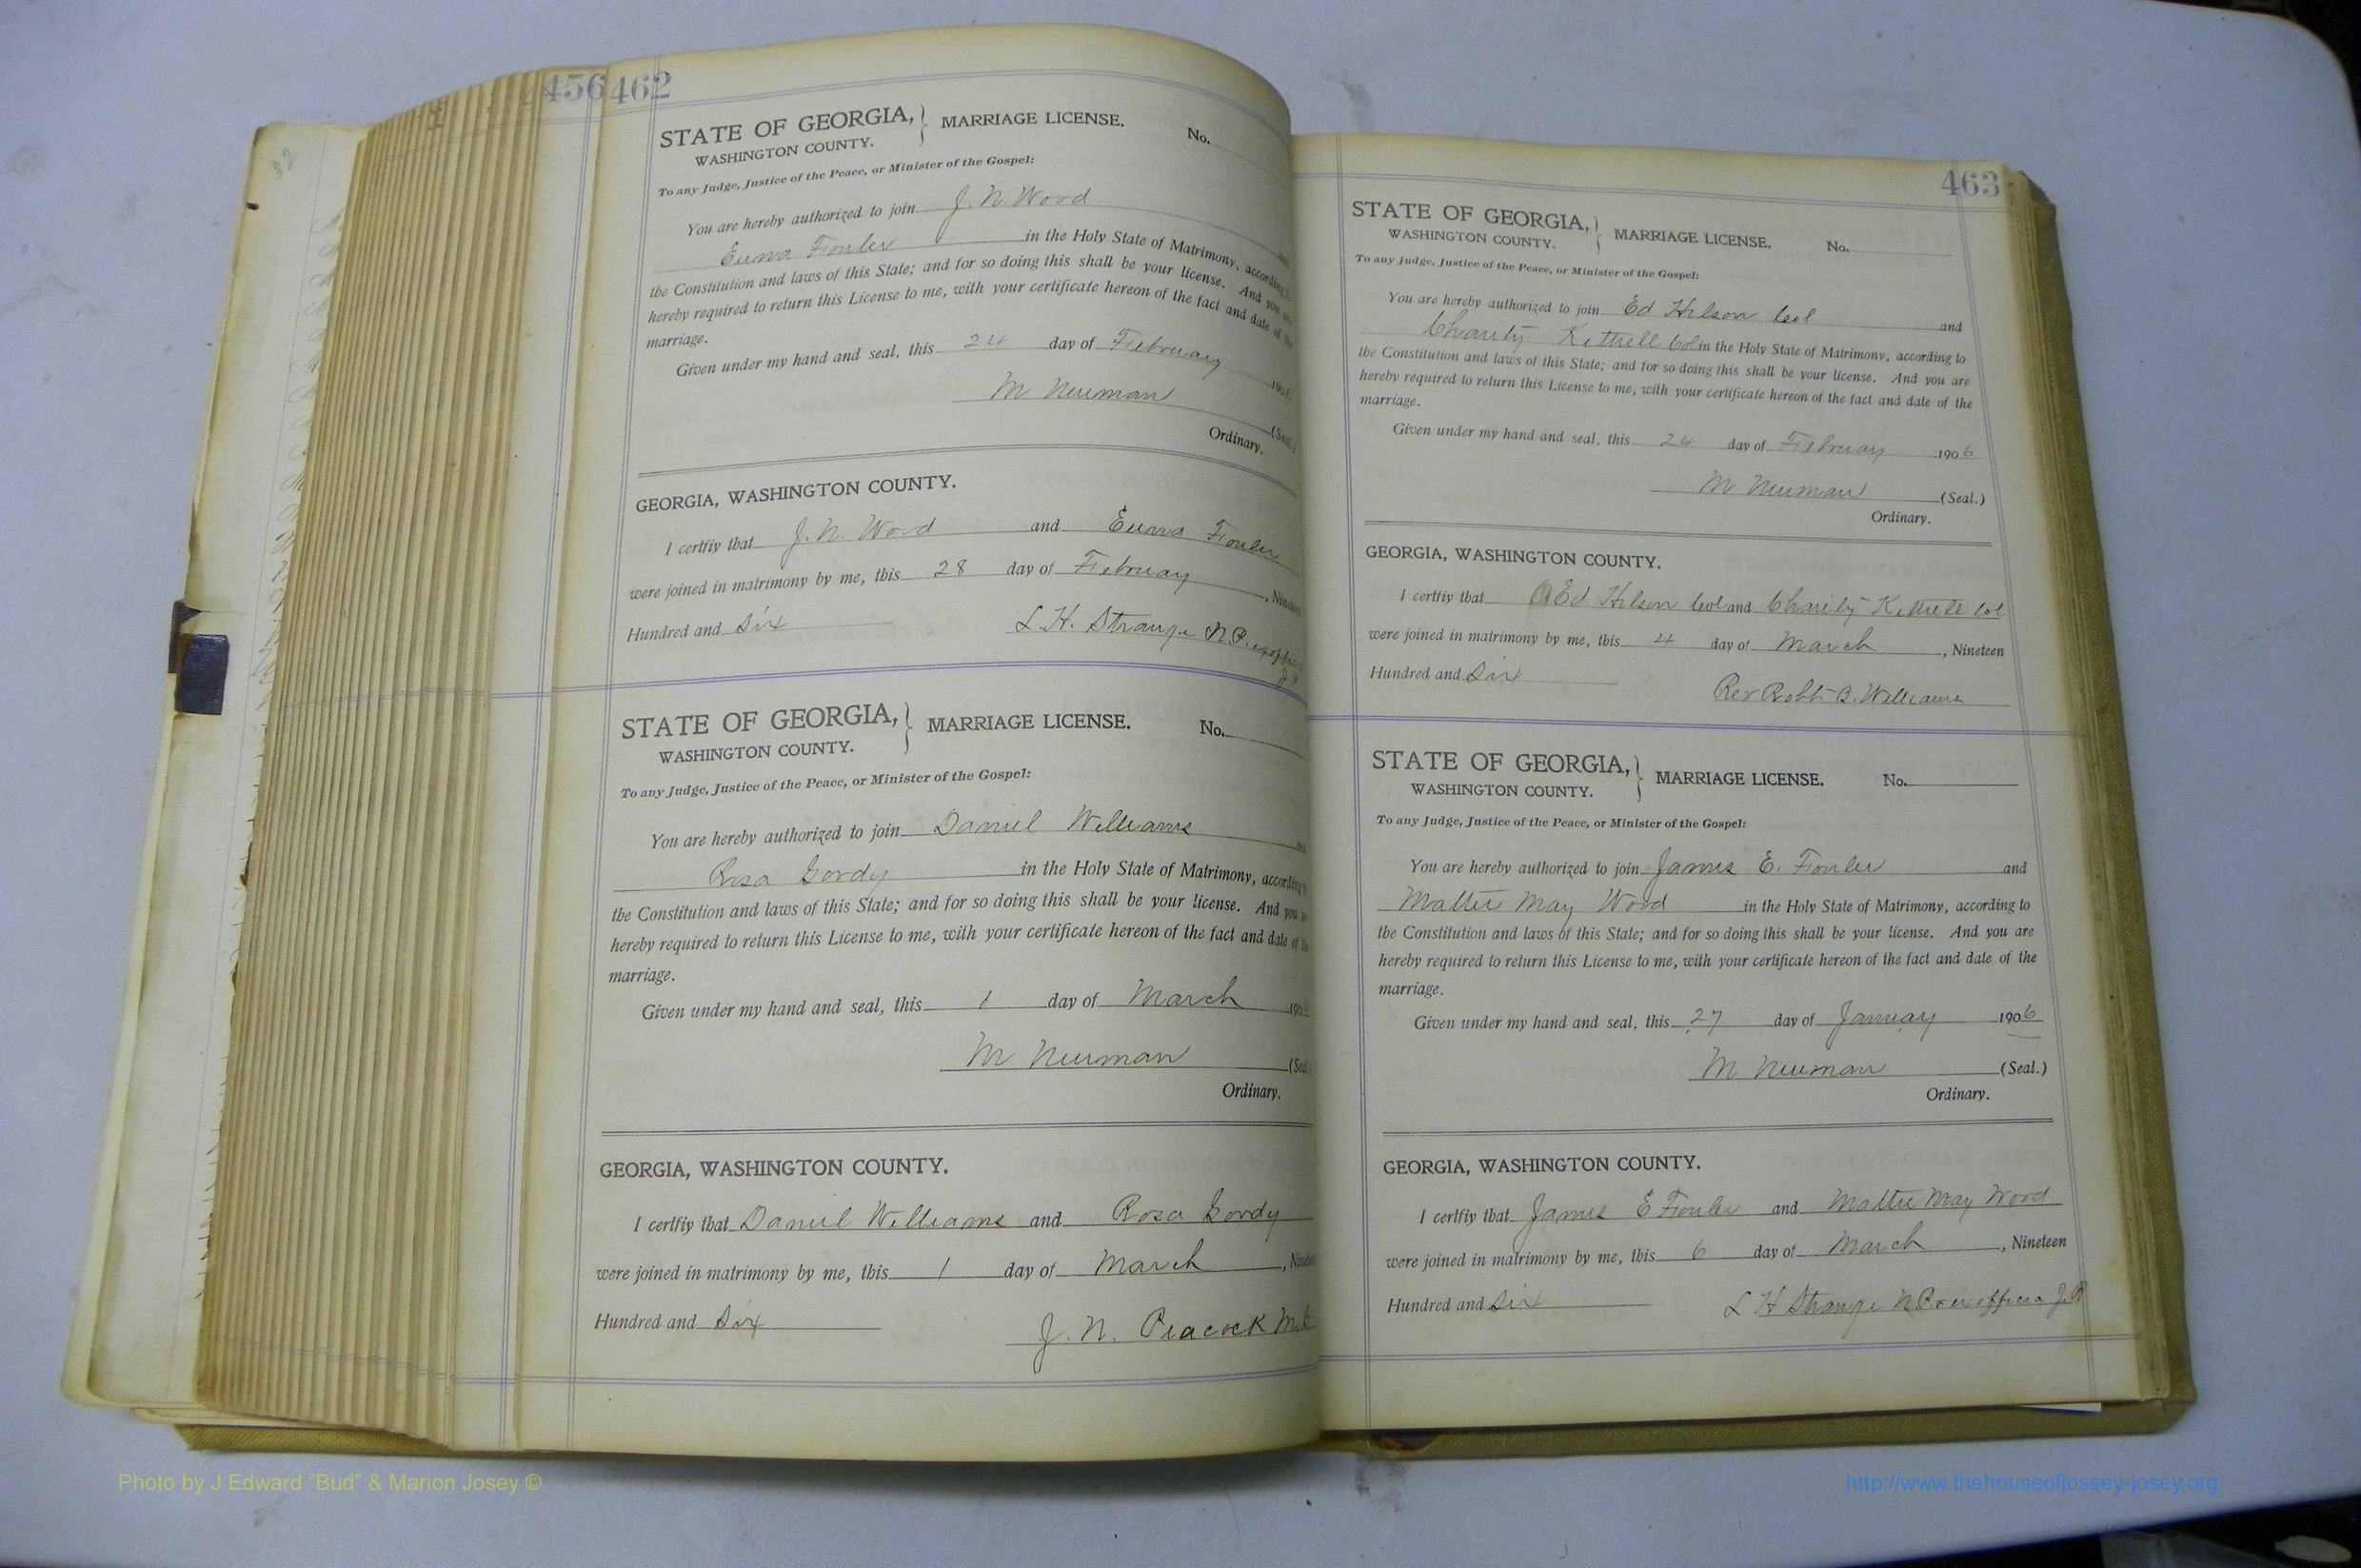 456 462
STATE OF GEORGIA, } MARRIAGE LICENSE. No.
WASHINGTON COUNTY.
To any Judge, Justice of the Peace, or Minister of the Gospel:
You are hereby authorized to join J. N. Wood and
Emma Fowler in the Holy State of Matrimony, according to
the Constitution and laws of this State; and for so doing this shall be your license. And you are
hereby required to return this License to me, with your certificate hereon of the fact and date of the
marriage.
Given under my hand and seal, this 24 day of February 1906
M Newman (Seal.)
Ordinary.
GEORGIA, WASHINGTON COUNTY.
I certfiy that J. N. Wood and Emma Fowler
were joined in matrimony by me, this 28 day of February, Nineteen
Hundred and Six L. H. Strange N.P. ex officio
J.P.
STATE OF GEORGIA, } MARRIAGE LICENSE. No.
WASHINGTON COUNTY.
To any Judge, Justice of the Peace, or Minister of the Gospel:
You are hereby authorized to join Daniel Williams and
Rosa Gordy in the Holy State of Matrimony, according to
the Constitution and laws of this State; and for so doing this shall be your license. And you are
hereby required to return this License to me, with your certificate hereon of the fact and date of the
marriage.
Given under my hand and seal, this 1 day of March 1906
M Newman (Seal.)
Ordinary.
GEORGIA, WASHINGTON COUNTY.
I certfiy that Daniel Williams and Rosa Gordy
were joined in matrimony by me, this 1 day of March, Nineteen
Hundred and Six J. N. Peacock M.G.
463
STATE OF GEORGIA, } MARRIAGE LICENSE. No.
WASHINGTON COUNTY.
To any Judge, Justice of the Peace, or Minister of the Gospel:
You are hereby authorized to join Ed Hilson Col and
Charity Kittrell Col in the Holy State of Matrimony, according to
the Constitution and laws of this State; and for so doing this shall be your license. And you are
hereby required to return this License to me, with your certificate hereon of the fact and date of the
marriage.
Given under my hand and seal, this 24 day of February 1906
M Newman (Seal.)
Ordinary.
GEORGIA, WASHINGTON COUNTY.
I certfiy that Ed Hilson Col and Charity Kittrell Col
were joined in matrimony by me, this 4 day of March, Nineteen
Hundred and Six Rev Robt B. Williams
STATE OF GEORGIA, } MARRIAGE LICENSE. No.
WASHINGTON COUNTY.
To any Judge, Justice of the Peace, or Minister of the Gospel:
You are hereby authorized to join James E. Fowler and
Mattie May Wood in the Holy State of Matrimony, according to
the Constitution and laws of this State; and for so doing this shall be your license. And you are
hereby required to return this License to me, with your certificate hereon of the fact and date of the
marriage.
Given under my hand and seal, this 27 day of January 1906
M Newman (Seal.)
Ordinary.
GEORGIA, WASHINGTON COUNTY.
I certfiy that James E Fowler and Mattie May Wood
were joined in matrimony by me, this 6 day of March, Nineteen
Hundred and Six L H Strange N P & ex officio J.P
Photo by J Edward “Bud” & Marion Josey ©
http://www.thehouseofjossey-josey.org